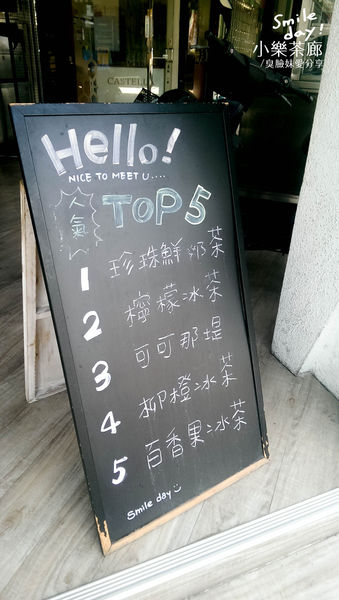 Smile
day!
小樂茶廊
/臭臉妹愛分享
CASTELL
Hello!
NICE TO MEET U....
人氣
TOP 5
1 珍珠鮮奶茶
2 檸檬冰茶
3 可可那堤
4 柳橙冰茶
5 百香果冰茶
Smile day